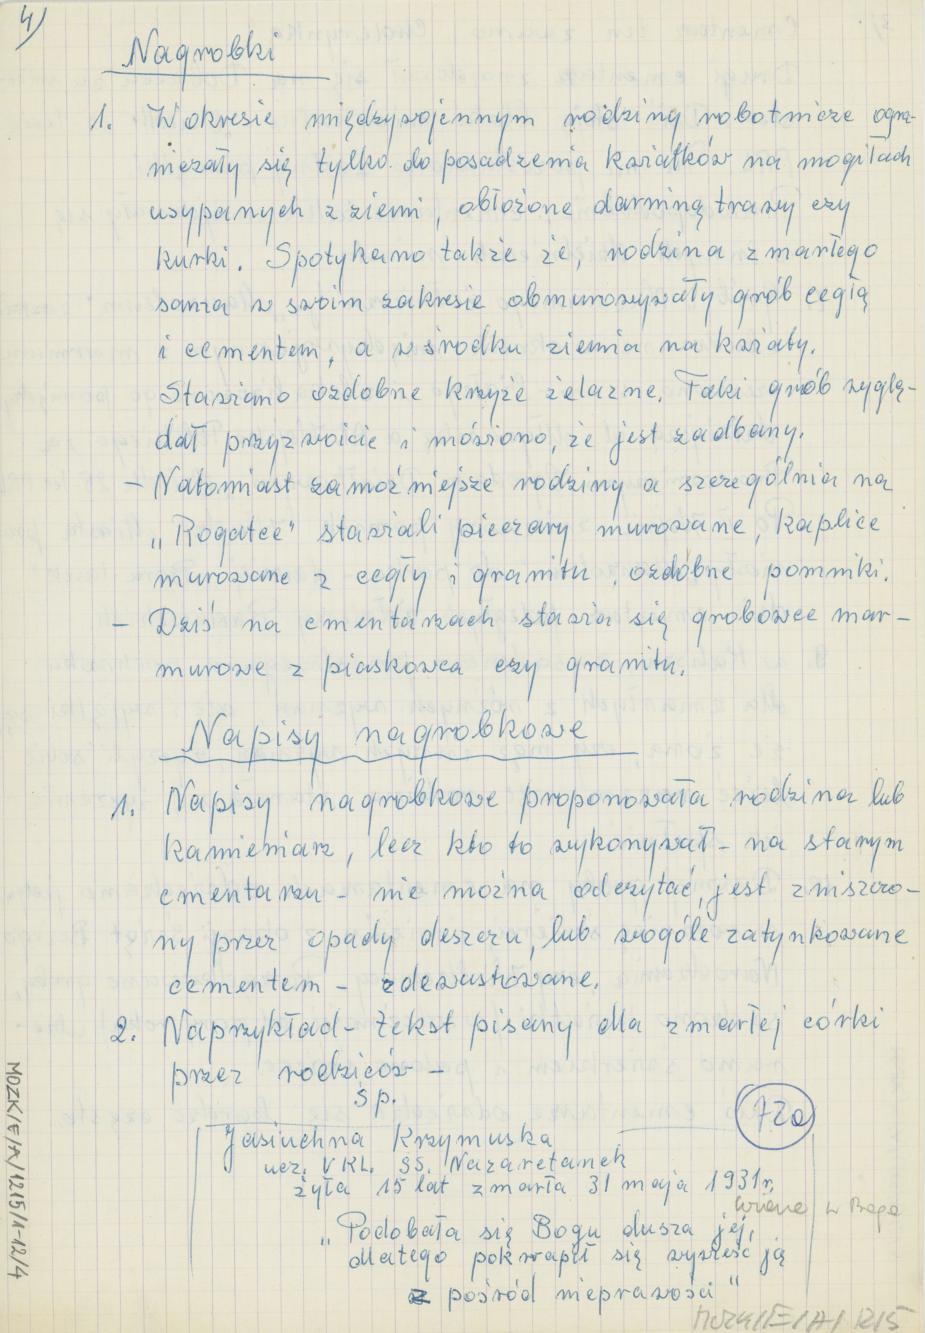 4)
Nagrobki
1. W okresie międzywojennym rodziny robotnicze ogra-
niczały się tylko do posadzenia kwiatków na mogiłach
usypanych z ziemi, obłożone darniną trawy czy
kurki. Spotykano także że, rodzina zmarłego
sama w swoim zakresie obmurowywały grób cegłą
i cementem, a w środku ziemia na kwiaty.
Stawiano ozdobne krzyże żelazne. Taki grób wyglą-
dał przyzwoicie i mówiono, że jest zadbany.
- Natomiast zamożniejsze rodziny a szczególnia na
„Rogatce" stawiali pieczary murowane, kaplice
murowane z cegły i granitu, ozdobne pomniki.
- Dziś na cmentarzach stawia się grobowce mar-
murowe z piaskowca czy granitu.
Napisy nagrobkowe
1. Napisy nagrobkowe proponowała rodzina lub
kamieniarz, lecz kto to wykonywał - na starym
cmentarzu - nie można odczytać, jest zniszczo-
ny przez opady deszczu, lub wogóle zatynkowane
cementem - zdewastowane.
2. Naprzykład - tekst pisany dla zmarłej córki
przez rodziców -
śp.
72a
Jasiuchna Krzymuska
ucz. V KL. SS. Nazaretanek
żyła 15 lat zmarła 31 maja 1931r.
w Boga
„Podobała się Bogu dusza jej,
dlatego pokwapił się wywieść ją
z pośród nieprawości"
MOZK/E/A/1215/1-12/4
MOZK/E/A/1215